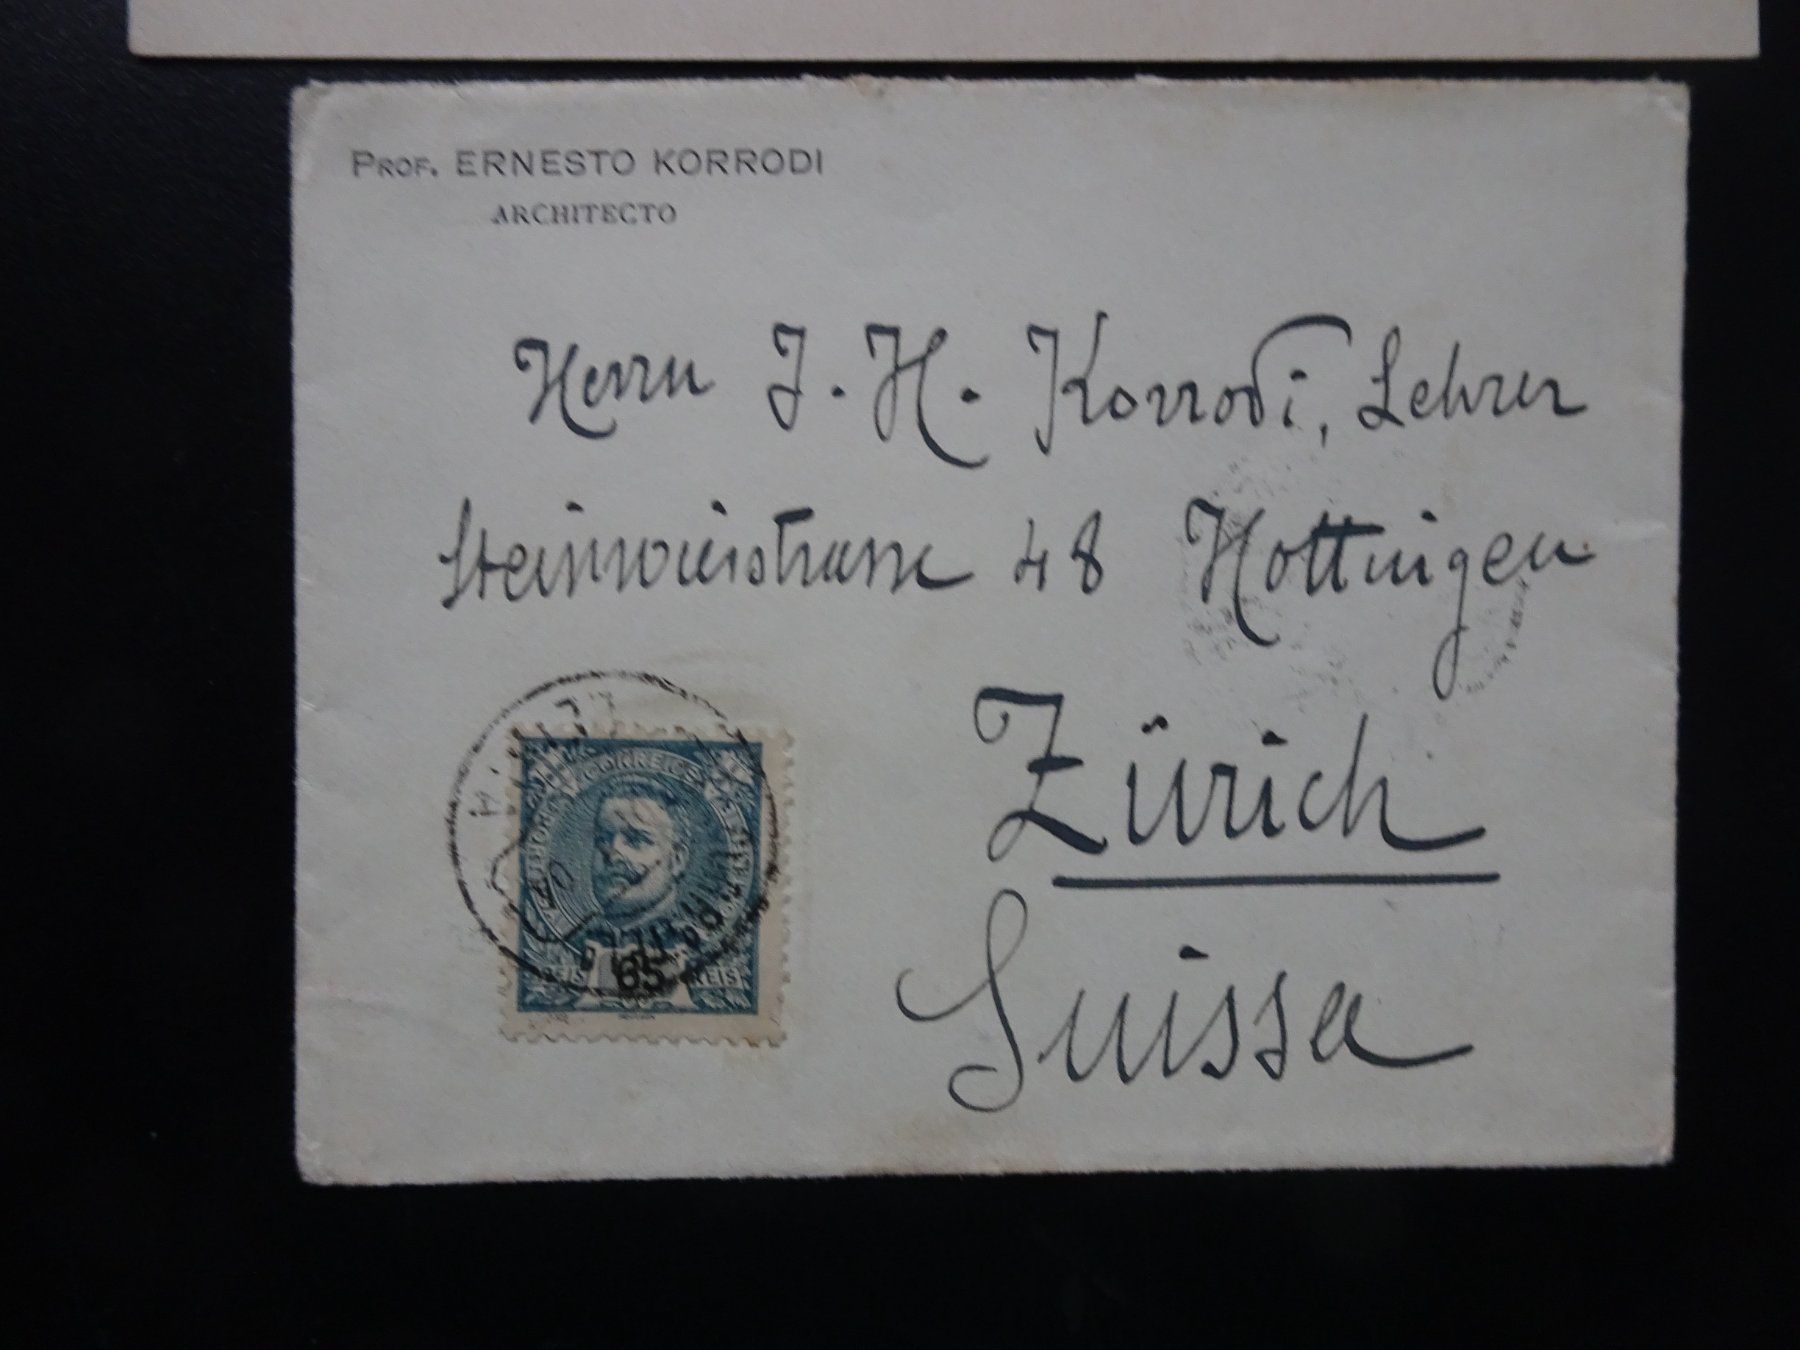 PROF. ERNESTO KORRODI
ARCHITECTO
Herrn J. H. Korrodi, Lehrer
Steinwiesstrasse 48 Hottingen
Zürich
Suissa
CORREIOS
REIS 65 REIS